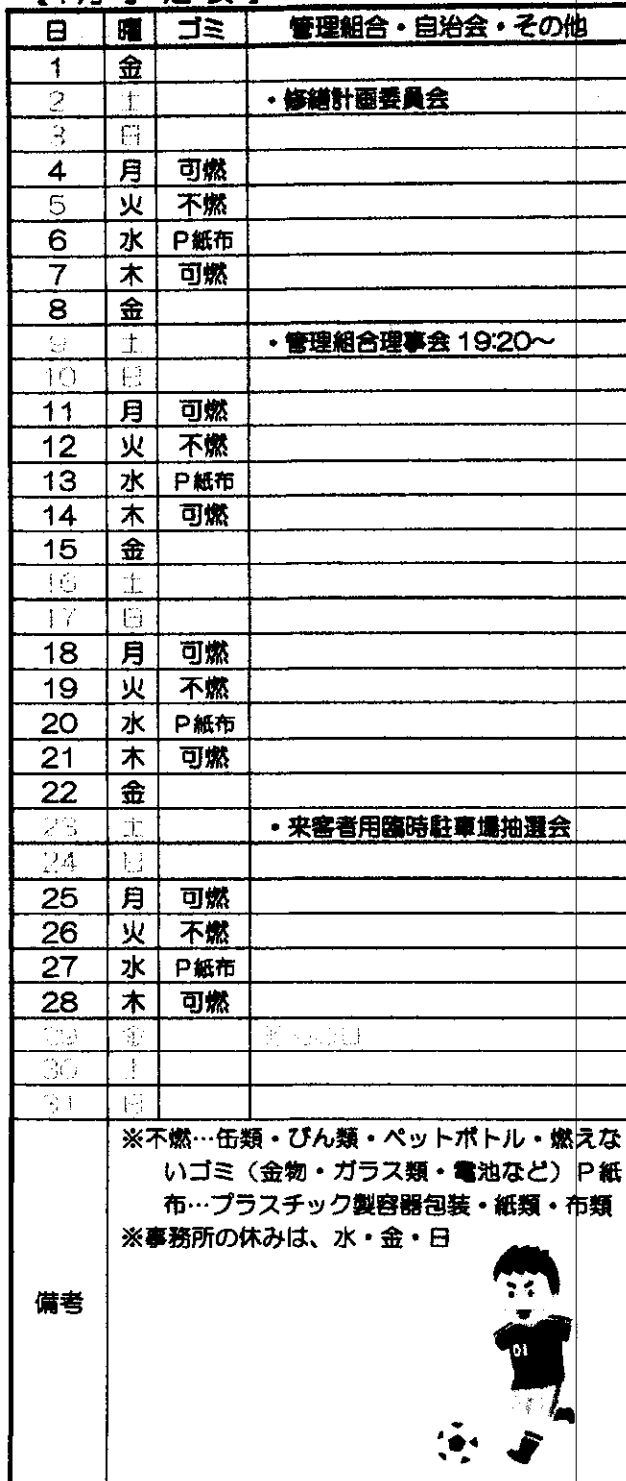 日 曜 ゴミ 管理組合・自治会・その他
1 金
2 土 ・修繕計画委員会
3 日
4 月 可燃
5 火 不燃
6 水 P紙布
7 木 可燃
8 金
9 土 ・管理組合理事会 19:20～
10 日
11 月 可燃
12 火 不燃
13 水 P紙布
14 木 可燃
15 金
16 土
17 日
18 月 可燃
19 火 不燃
20 水 P紙布
21 木 可燃
22 金
23 土 ・来客者用臨時駐車場抽選会
24 日
25 月 可燃
26 火 不燃
27 水 P紙布
28 木 可燃
29 金
30 土
31 日
備考
※不燃…缶類・びん類・ペットボトル・燃えな
いゴミ（金物・ガラス類・電池など）P紙
布…プラスチック製容器包装・紙類・布類
※事務所の休みは、水・金・日
01